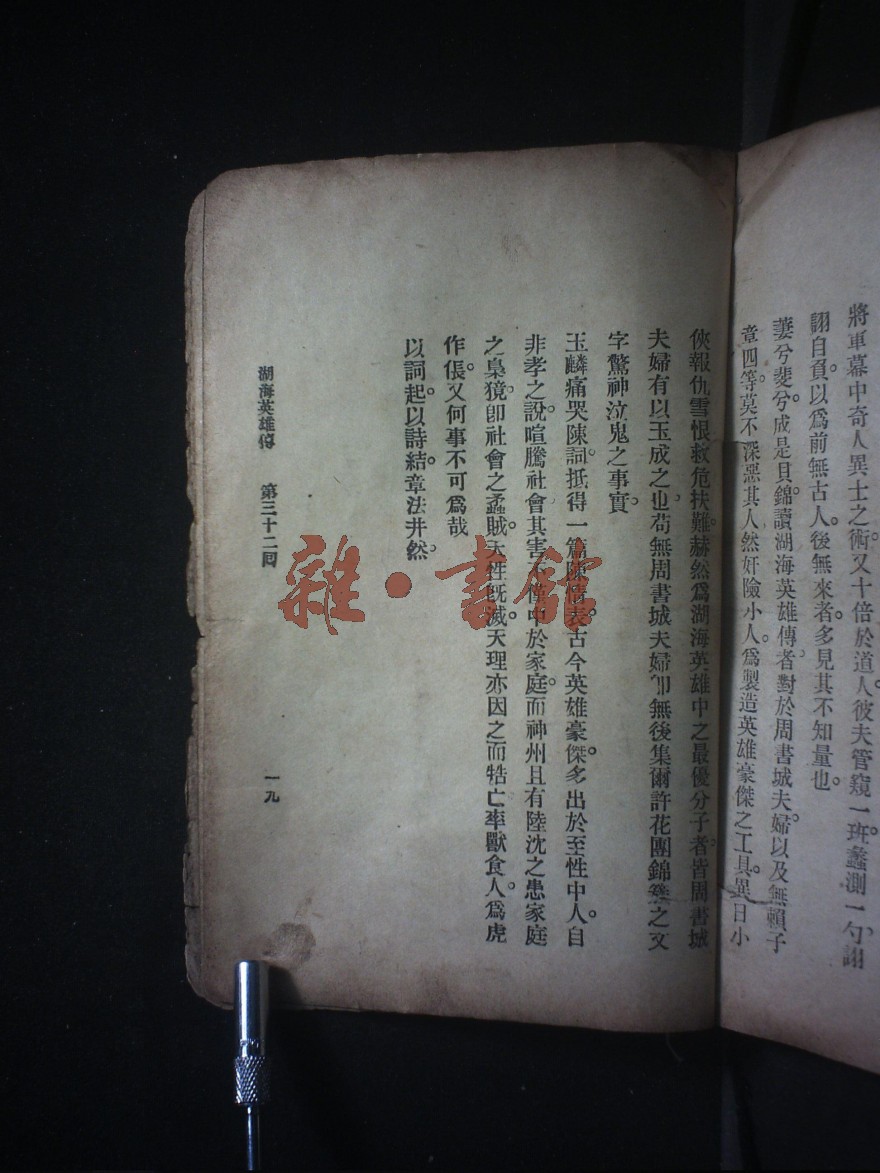 將軍幕中奇人異士之術。又十倍於道人。彼夫管窺一斑。蠡測一勺。詡
詡自負。以爲前無古人。後無來者。多見其不知量也。
萋兮斐兮。成是貝錦。讀湖海英雄傳者。對於周書城夫婦。以及無賴子
章四等。莫不深惡其人。然奸險小人。爲製造英雄豪傑之工具。異日小
俠報仇雪恨。救危扶難。赫然爲湖海英雄中之最優分子者。皆周書城
夫婦有以玉成之也。苟無周書城夫婦。卽無後集爾許花團錦簇之文
字。驚神泣鬼之事實。
玉麟痛哭陳詞。抵得一篇陳情表。古今英雄豪傑。多出於至性中人。自
非孝之說。喧騰社會。其害不僅中於家庭。而神州且有陸沈之患。家庭
之梟獍。卽社會之蟊賊。天性旣滅。天理亦因之而牿亡。率獸食人。爲虎
作倀。又何事不可爲哉
以詞起。以詩結。章法井然。
湖海英雄傳 第三十二回 一九
雜·書館